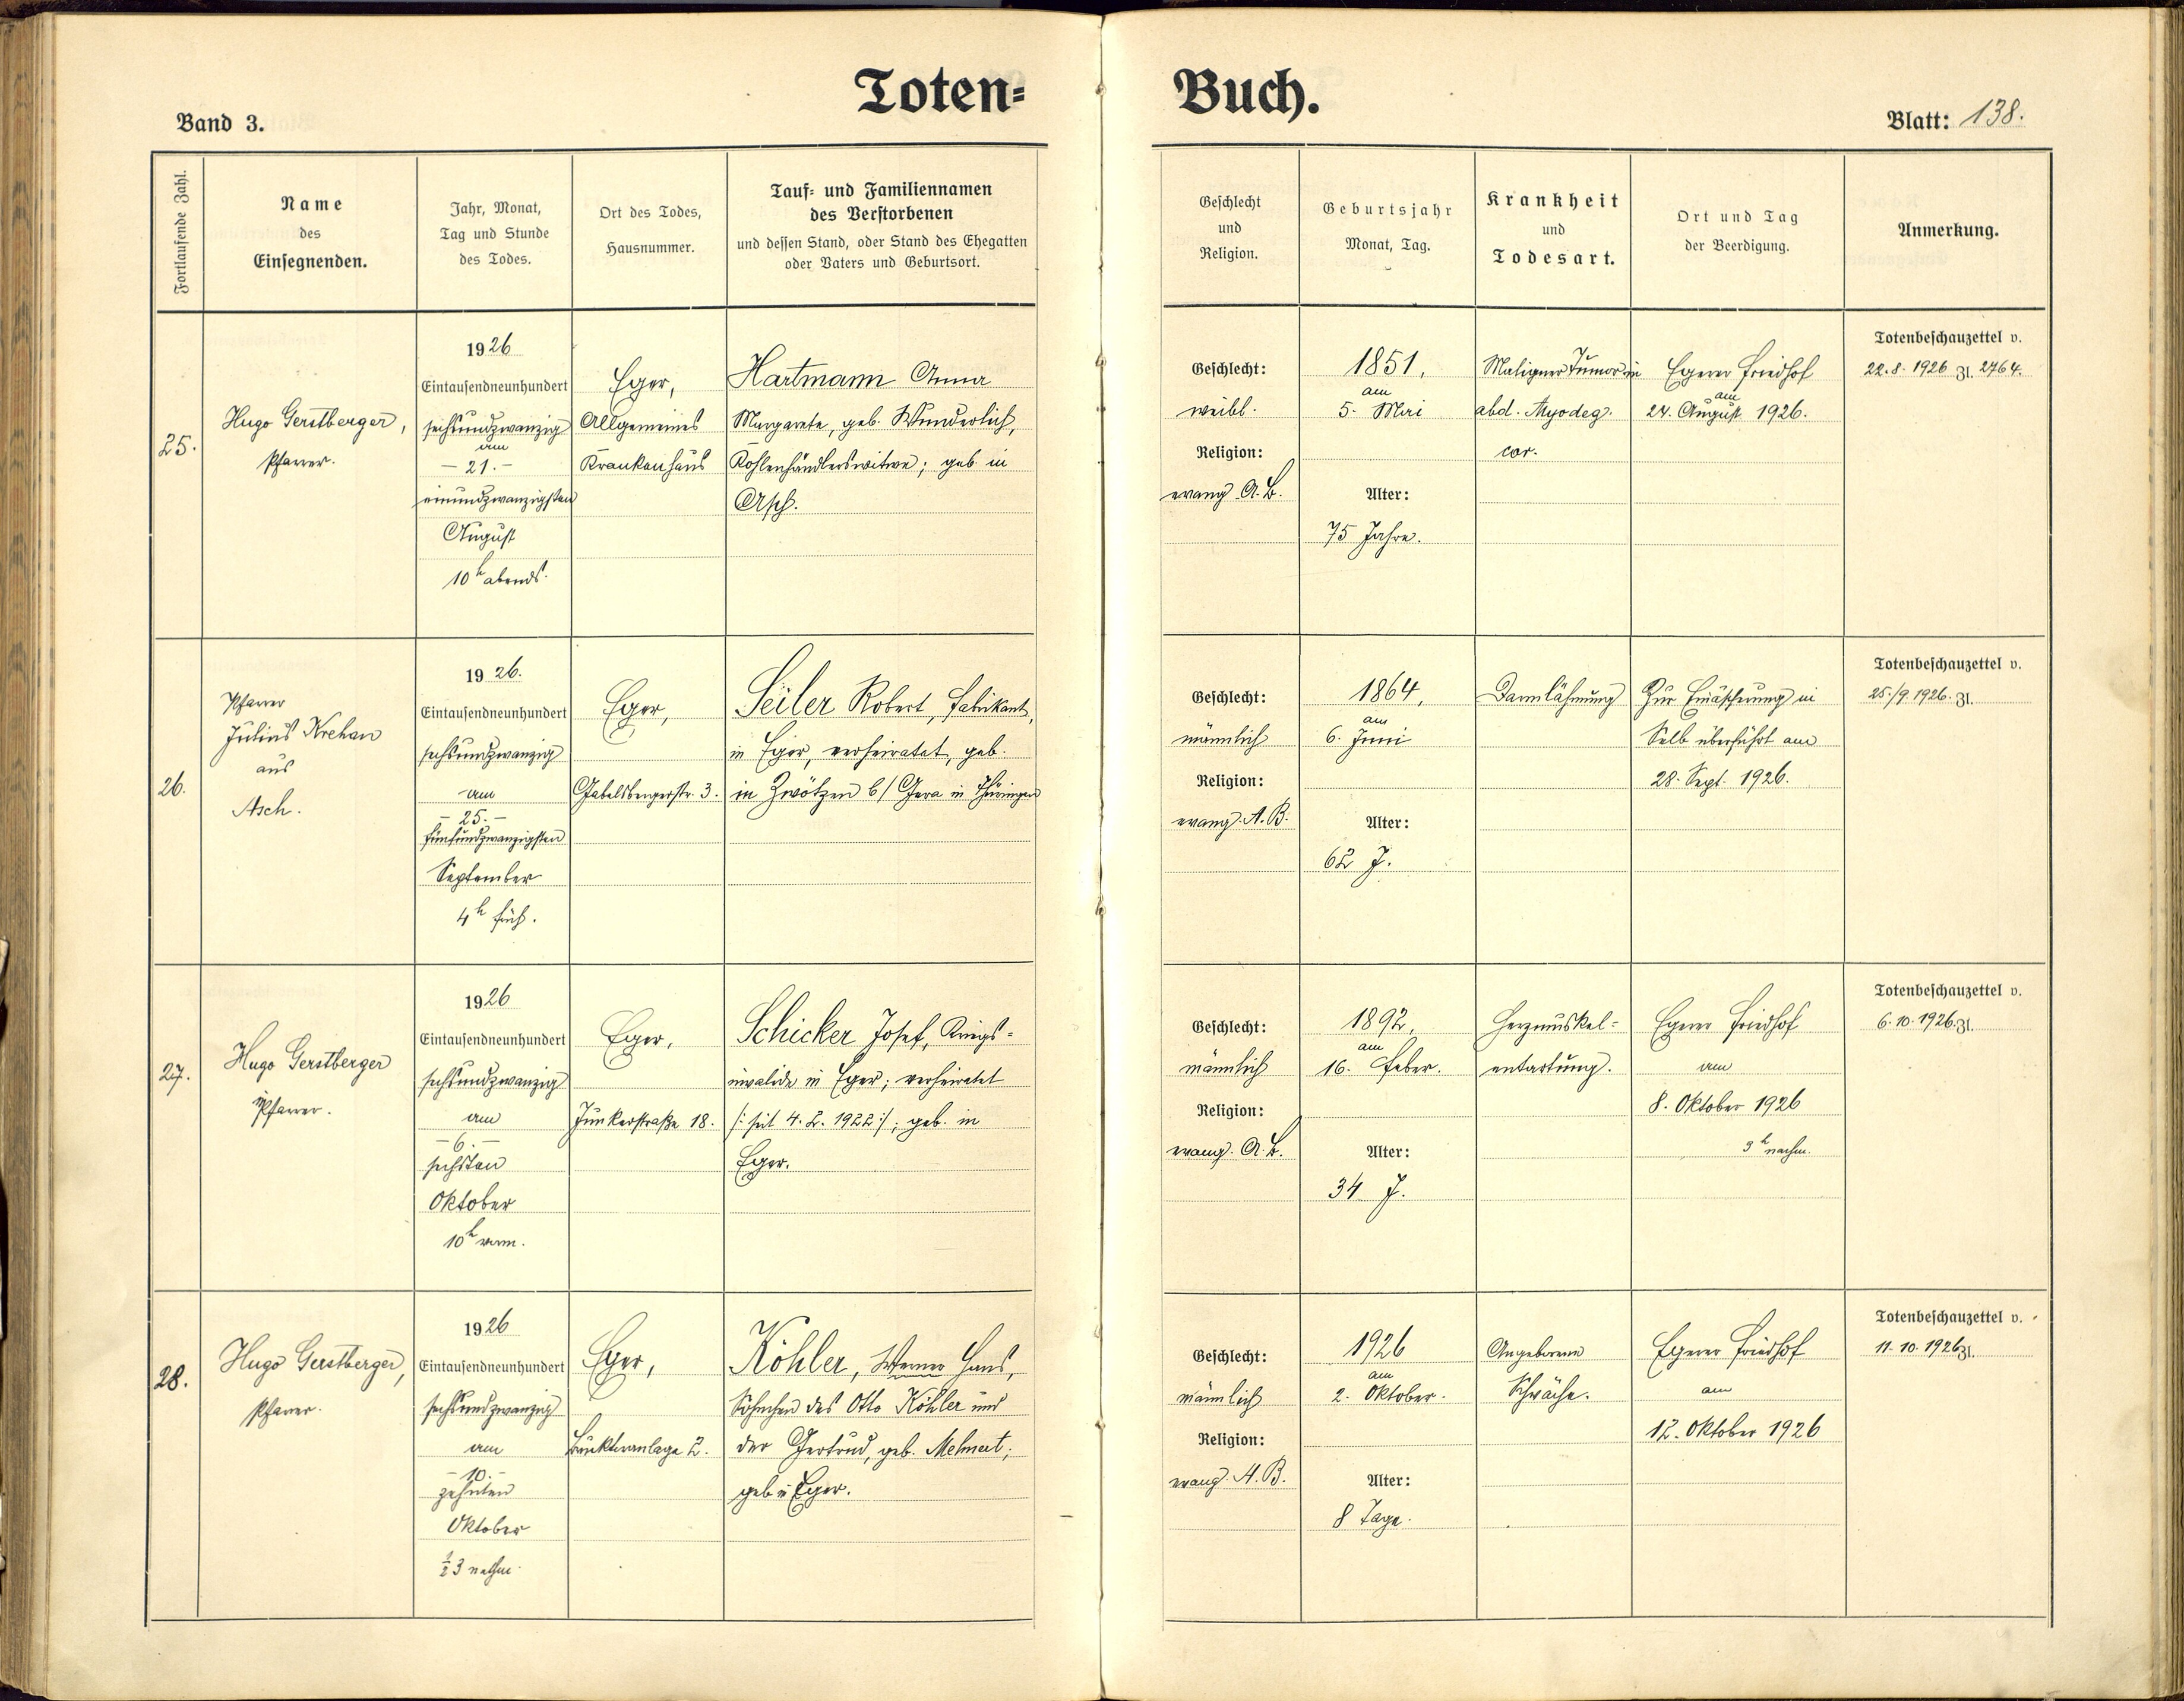 Toten=
Buch.
Band 3.
Blatt: 138.
Fortlaufende Zahl.
Name
des
Einsegnenden.
Jahr, Monat,
Tag und Stunde
des Todes.
Ort des Todes,
Hausnummer.
Tauf= und Familiennamen
des Verstorbenen
und dessen Stand, oder Stand des Ehegatten
oder Vaters und Geburtsort.
Geschlecht
und
Religion.
Geburtsjahr
Monat, Tag.
Krankheit
und
Todesart.
Ort und Tag
der Beerdigung.
Anmerkung.
25.
Hugo Gerstberger,
Pfarrer.
1926
Eintausendneunhundert
sechsundzwanzig
am
– 21. –
einundzwanzigsten
August
10 h abends.
Eger,
Allgemeines
Krankenhaus
Hartmann Anna
Margarete, geb. Wunderlich,
Kohlenhändlerswitwe; geb. in
Asch.
Geschlecht:
weibl.
Religion:
evang. A. B.
1851,
am
5. Mai
Alter:
75 Jahre.
Maligner Tumor in
abd. Myodeg.
cor.
Egerer Friedhof
am
24. August 1926.
Totenbeschauzettel v.
22.8.1926 Zl. 2764.
26.
Pfarrer
Julius Krehan
aus
Asch.
1926.
Eintausendneunhundert
sechsundzwanzig
am
– 25. –
fünfundzwanzigsten
September
4 h früh.
Eger,
Gabelsbergerstr. 3.
Seiler Robert, Fabrikant,
in Eger, verheiratet, geb.
in Zwötzen b/ Gera in Thüringen
Geschlecht:
männlich
Religion:
evang. A. B.
1864,
am
6. Juni
Alter:
62 J.
Darmlähmung
Zur Einäscherung in
Selb überführt am
28. Sept. 1926.
Totenbeschauzettel v.
25./9.1926. Zl.
27.
Hugo Gerstberger
Pfarrer.
1926
Eintausendneunhundert
sechsundzwanzig
am
– 6. –
sechsten
Oktober
10 h vorm.
Eger,
Junkerstraße 18.
Schicker Josef, Kriegs=
invalide in Eger; verheiratet
/: seit 4. 2. 1922 :/; geb. in
Eger.
Geschlecht:
männlich
Religion:
evang. A. B.
1892,
am
16. Feber.
Alter:
34 J.
Herzmuskel=
entartung.
Egerer Friedhof
am
8. Oktober 1926
3 h nachm.
Totenbeschauzettel v.
6.10.1926. Zl.
28.
Hugo Gerstberger,
Pfarrer.
1926
Eintausendneunhundert
sechsundzwanzig
am
– 10. –
zehnten
Oktober
½ 3 nachm.
Eger,
2.
Köhler, Werner Hans,
Söhnchen des Otto Köhler und
der Gertrud, geb. Mehnert;
geb. in Eger.
Geschlecht:
männlich
Religion:
evang. A. B.
1926
am
2. Oktober.
Alter:
8 Tage.
Angeborene
Schwäche.
Egerer Friedhof
am
12. Oktober 1926
Totenbeschauzettel v.
11.10.1926 Zl.